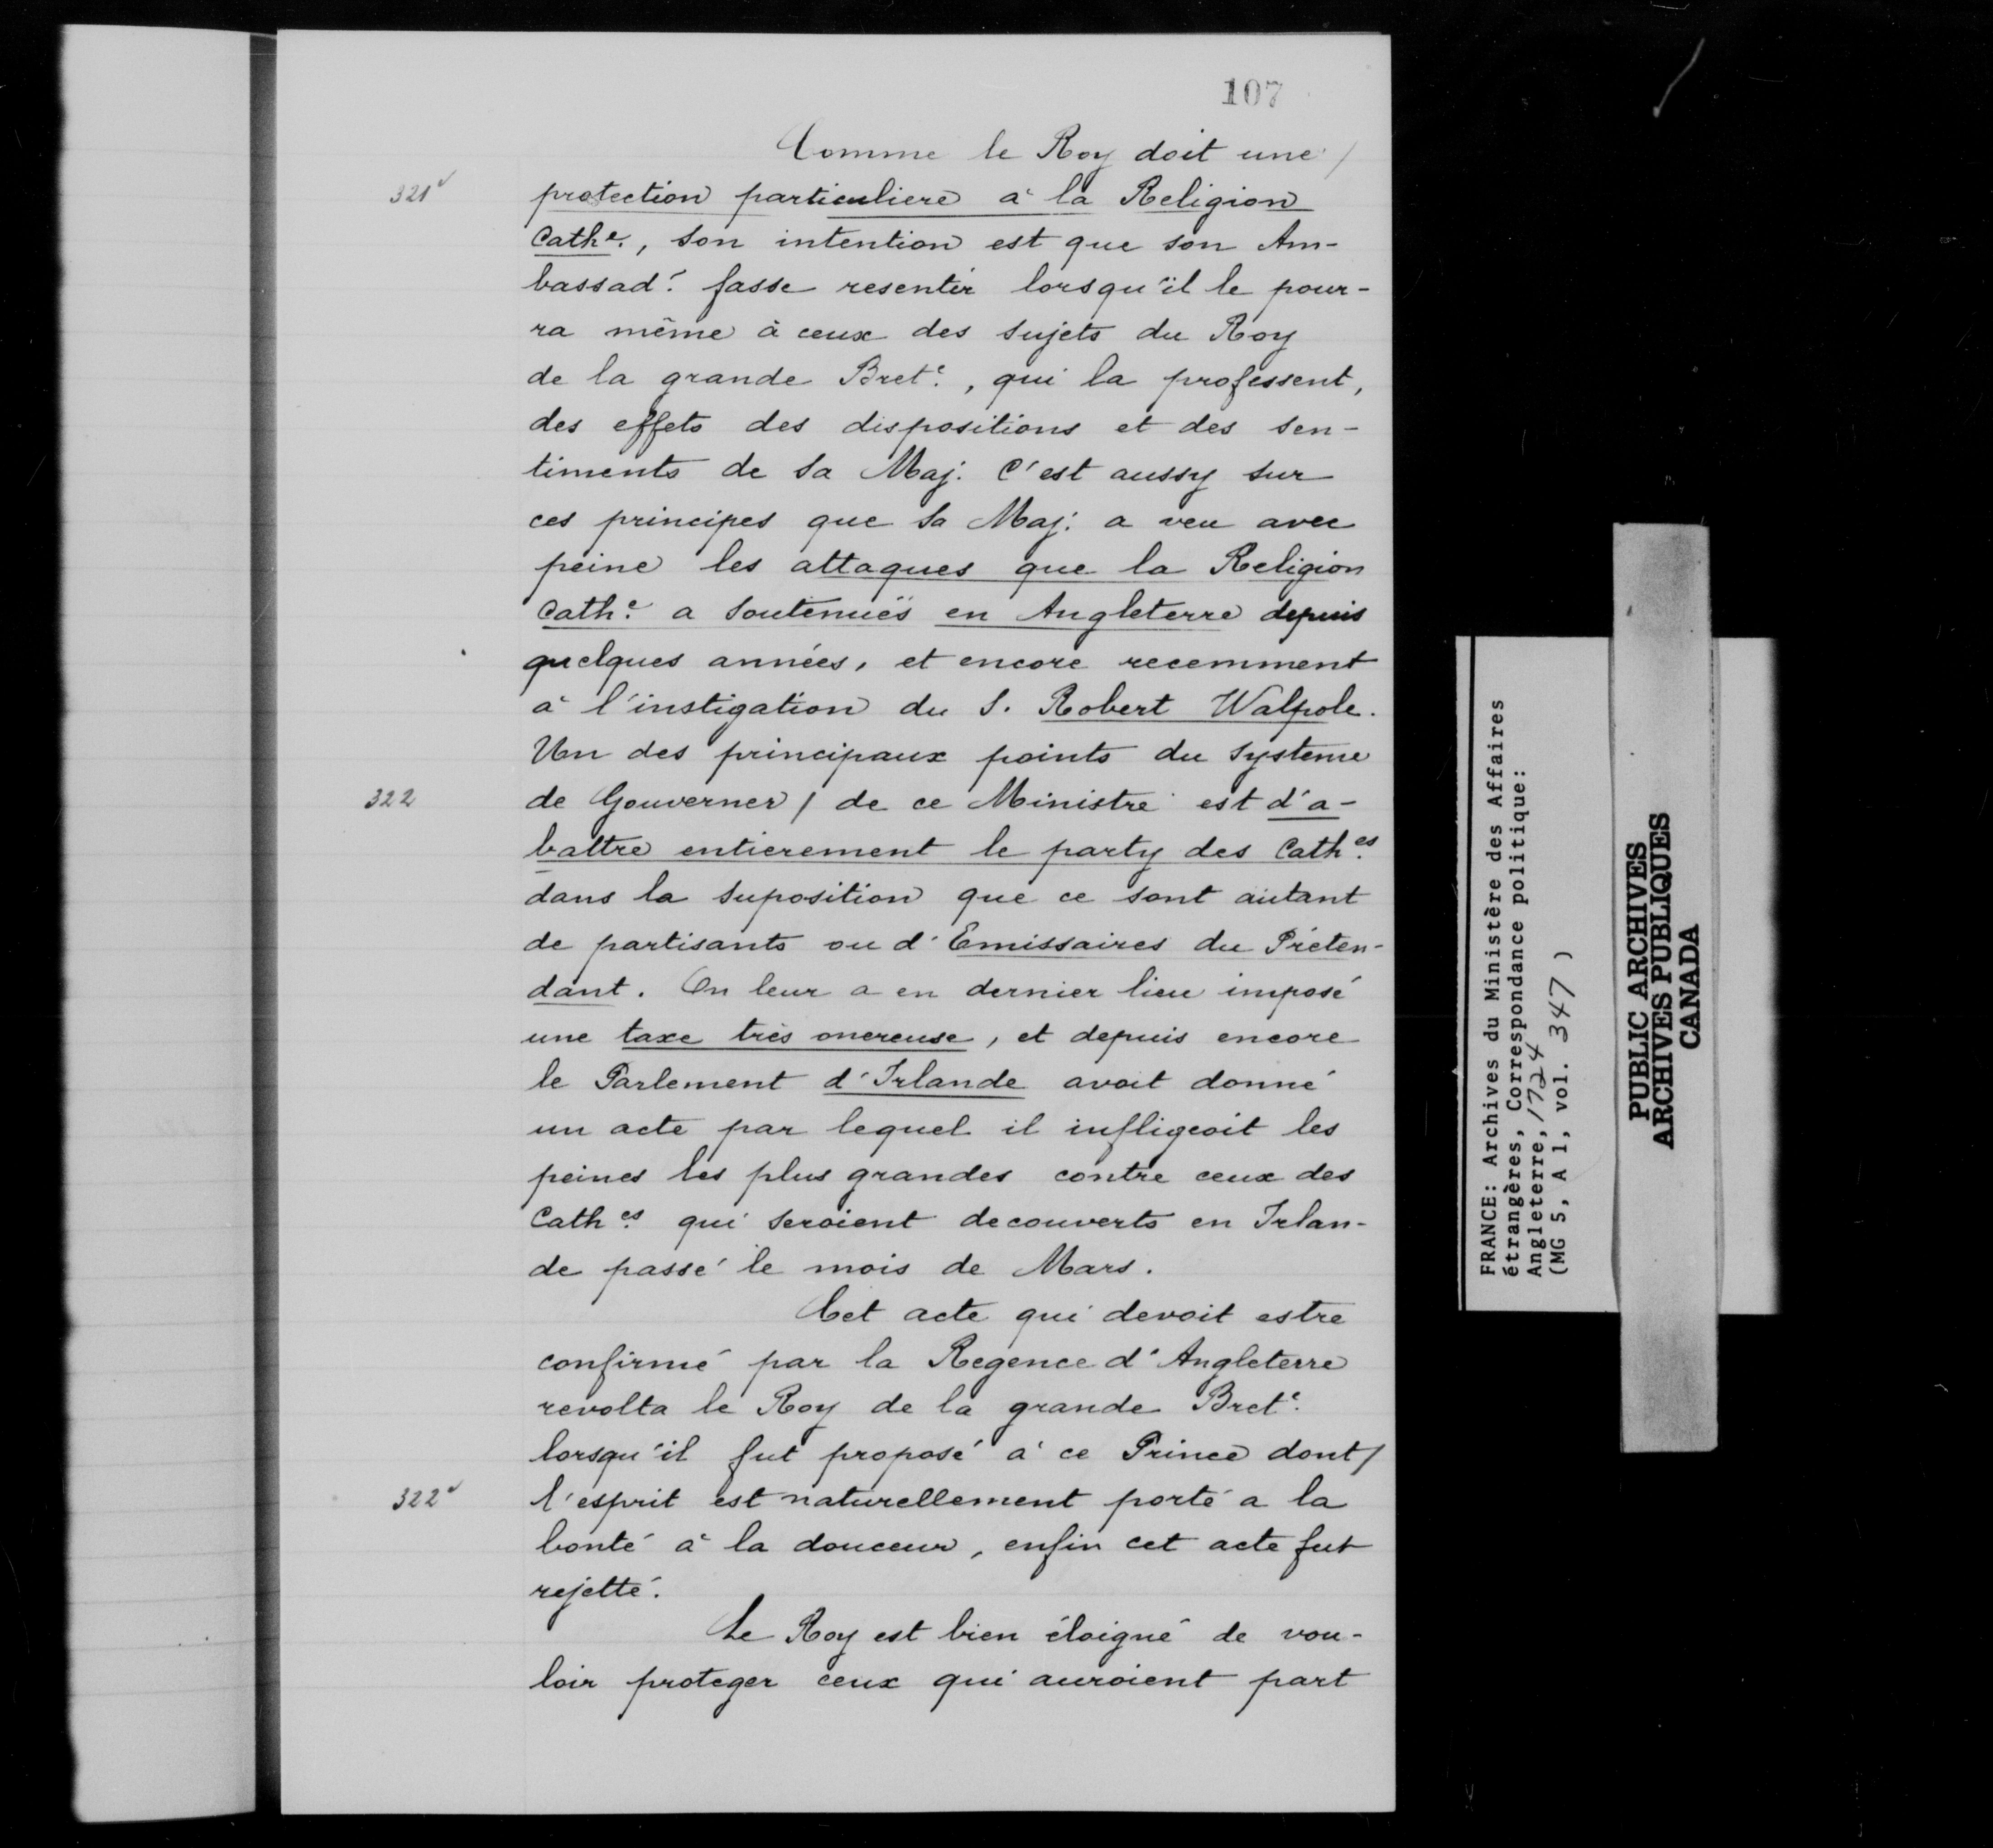 107
Comme le Roy doit une /
321v protection particuliere à la Religion
Cathe., son intention est que son Am-
bassadr. fasse resentir lorsqu'il le pour-
ra même à ceux des sujets du Roy
de la grande Brete., qui la professent,
des effets des dispositions et des sen-
timents de Sa Maj. C'est aussy sur
ces principes que Sa Maj. a veu avec
peine les attaques que la Religion
Cathe. a soutenuës en Angleterre depuis
quelques années, et encore recemment
à l'instigation du S. Robert Walpole.
Un des principaux points du systeme
322 de Gouverner / de ce Ministre est d'a-
battre entierement le party des Cathes.
dans la suposition que ce sont autant
de partisants ou d'Emissaires du Préten-
dant. On leur a en dernier lieu imposé
une taxe très onereuse, et depuis encore
le Parlement d'Irlande avoit donné
un acte par lequel il infligeoit les
peines les plus grandes contre ceux des
Cathes. qui seroient decouverts en Irlan-
de passé le mois de Mars.
Cet acte qui devoit estre
confirmé par la Regence d'Angleterre
revolta le Roy de la grande Brete.
lorsqu'il fut proposé à ce Prince dont /
322v l'esprit est naturellement porté a la
bonté à la douceur, enfin cet acte fut
rejetté.
Le Roy est bien éloigné de vou-
loir proteger ceux qui auroient part
FRANCE: Archives du Ministère des Affaires
étrangères, Correspondance politique:
Angleterre, 1724
(MG 5, A 1, vol. 347 )
PUBLIC ARCHIVES
ARCHIVES PUBLIQUES
CANADA